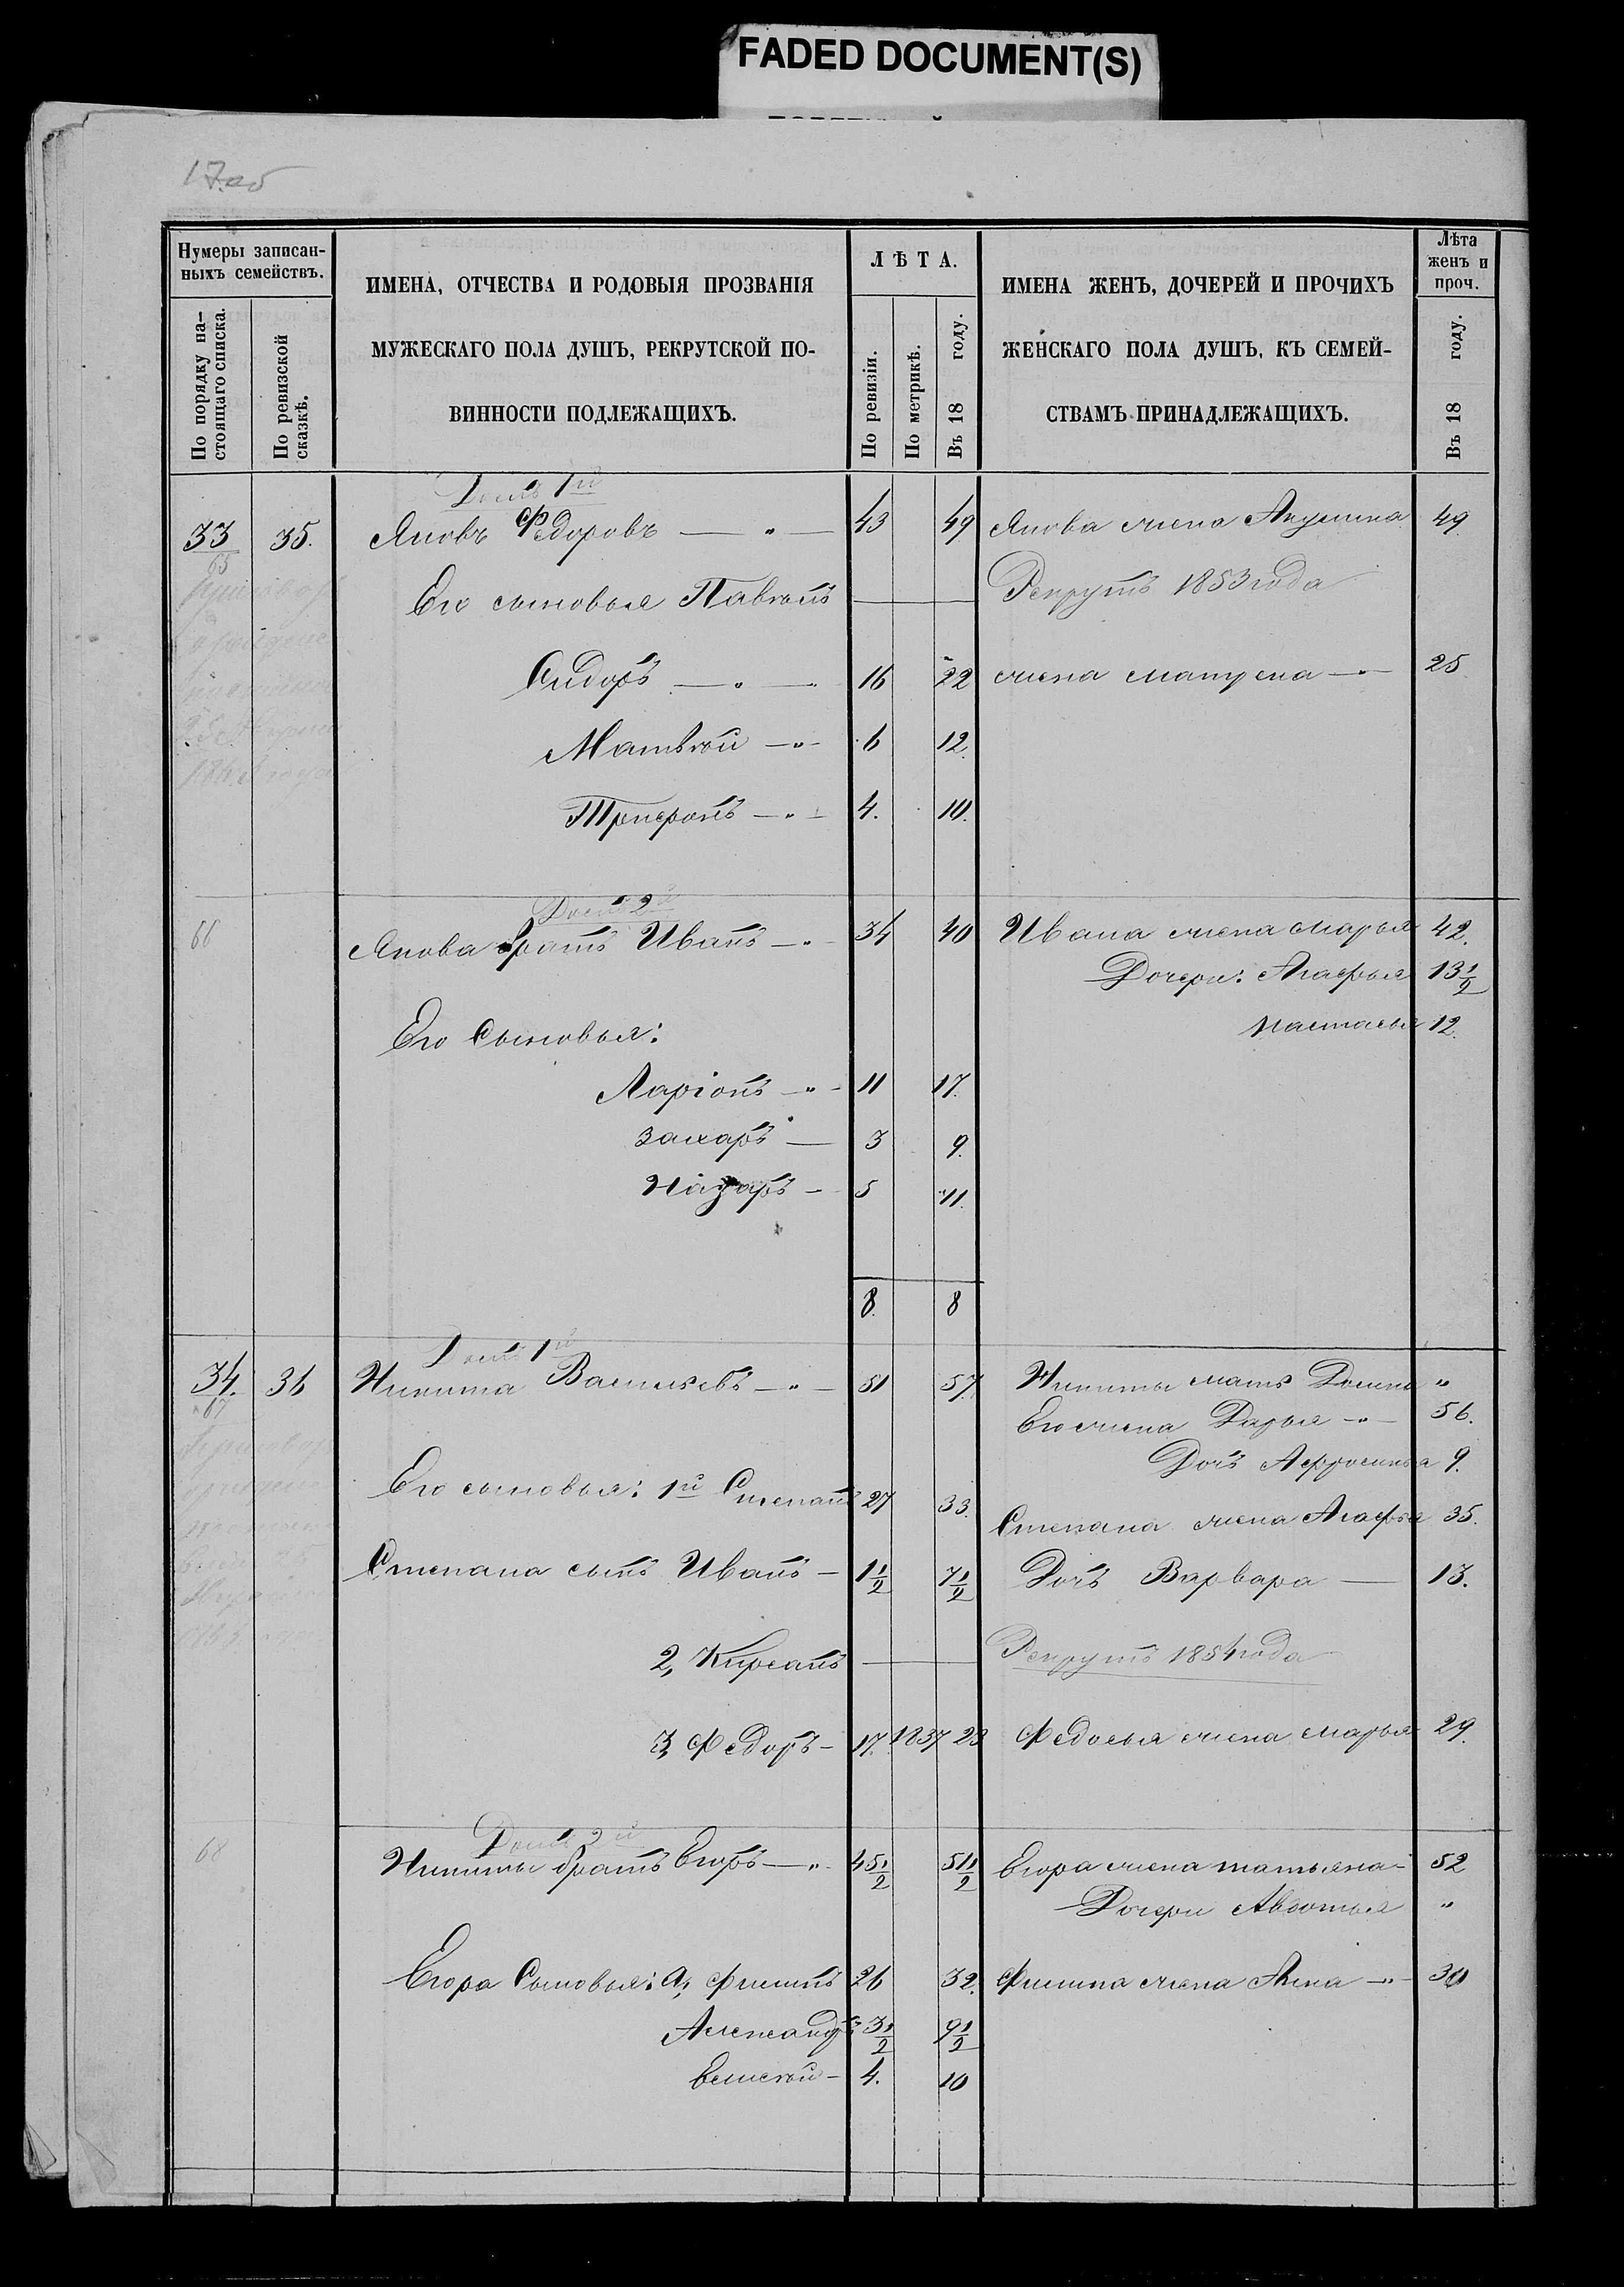 FADED DOCUMENT(S)
17.об
Нумеры записан-
ныхъ семействъ.
По порядку на-
стоящаго списка.
По ревизской
сказкѣ.
ИМЕНА, ОТЧЕСТВА И РОДОВЫЯ ПРОЗВАНІЯ
МУЖЕСКАГО ПОЛА ДУШЪ, РЕКРУТСКОЙ ПО-
ВИННОСТИ ПОДЛЕЖАЩИХЪ.
ЛѢТА.
По ревизіи.
По метрикѣ.
Въ 18 году.
ИМЕНА ЖЕНЪ, ДОЧЕРЕЙ И ПРОЧИХЪ
ЖЕНСКАГО ПОЛА ДУШЪ, КЪ СЕМЕЙ-
СТВАМЪ ПРИНАДЛЕЖАЩИХЪ.
Лѣта
женъ и
проч.
Въ 18 году.
Домъ 1й
33 35. Яковъ Федоровъ — " — 43 49 Якова жена Акулина 49
65
Его сыновья Павелъ — Рекрутъ 1853 года
Сидоръ — " — 16 22 жена матрена — 25
Матвѣй — " — 6 12.
Трифонъ — " — 4. 10.
Домъ 2й
66 Якова братъ Иванъ — " 34 40 Ивана жена марья 42.
Дочери: Агафья 13 1/2
настасья 12.
Его Сыновья:
Ларіонъ — " — 11 17.
захаръ — 3 9.
назаръ — 5 11.
8. 8
Домъ 1й
34. 36 Никита Васильевъ — " — 51 57. Никиты мать Домна "
67
Его жена Дарья — " — 56.
Дочь Афросинья 9.
Его сыновья: 1й Степанъ 27 33.
Степана жена Агафья 35.
Степана сынъ Иванъ — 1 1/2 7 1/2 Дочь Варвара — 13.
2, Кирсанъ — Рекрутъ 1854 года
3, Федоръ — 17. 1837 23 Федосья жена марья 29.
Домъ 2й
68 Никиты братъ Егоръ — " — 45 1/2 51 1/2 Егора жена татьяна — 52
Дочери Авдотья "
Егора Сыновья: а, филипъ 26 32. Филипа жена Анна — " — 30
Александръ 3 1/2 9 1/2
4. 10